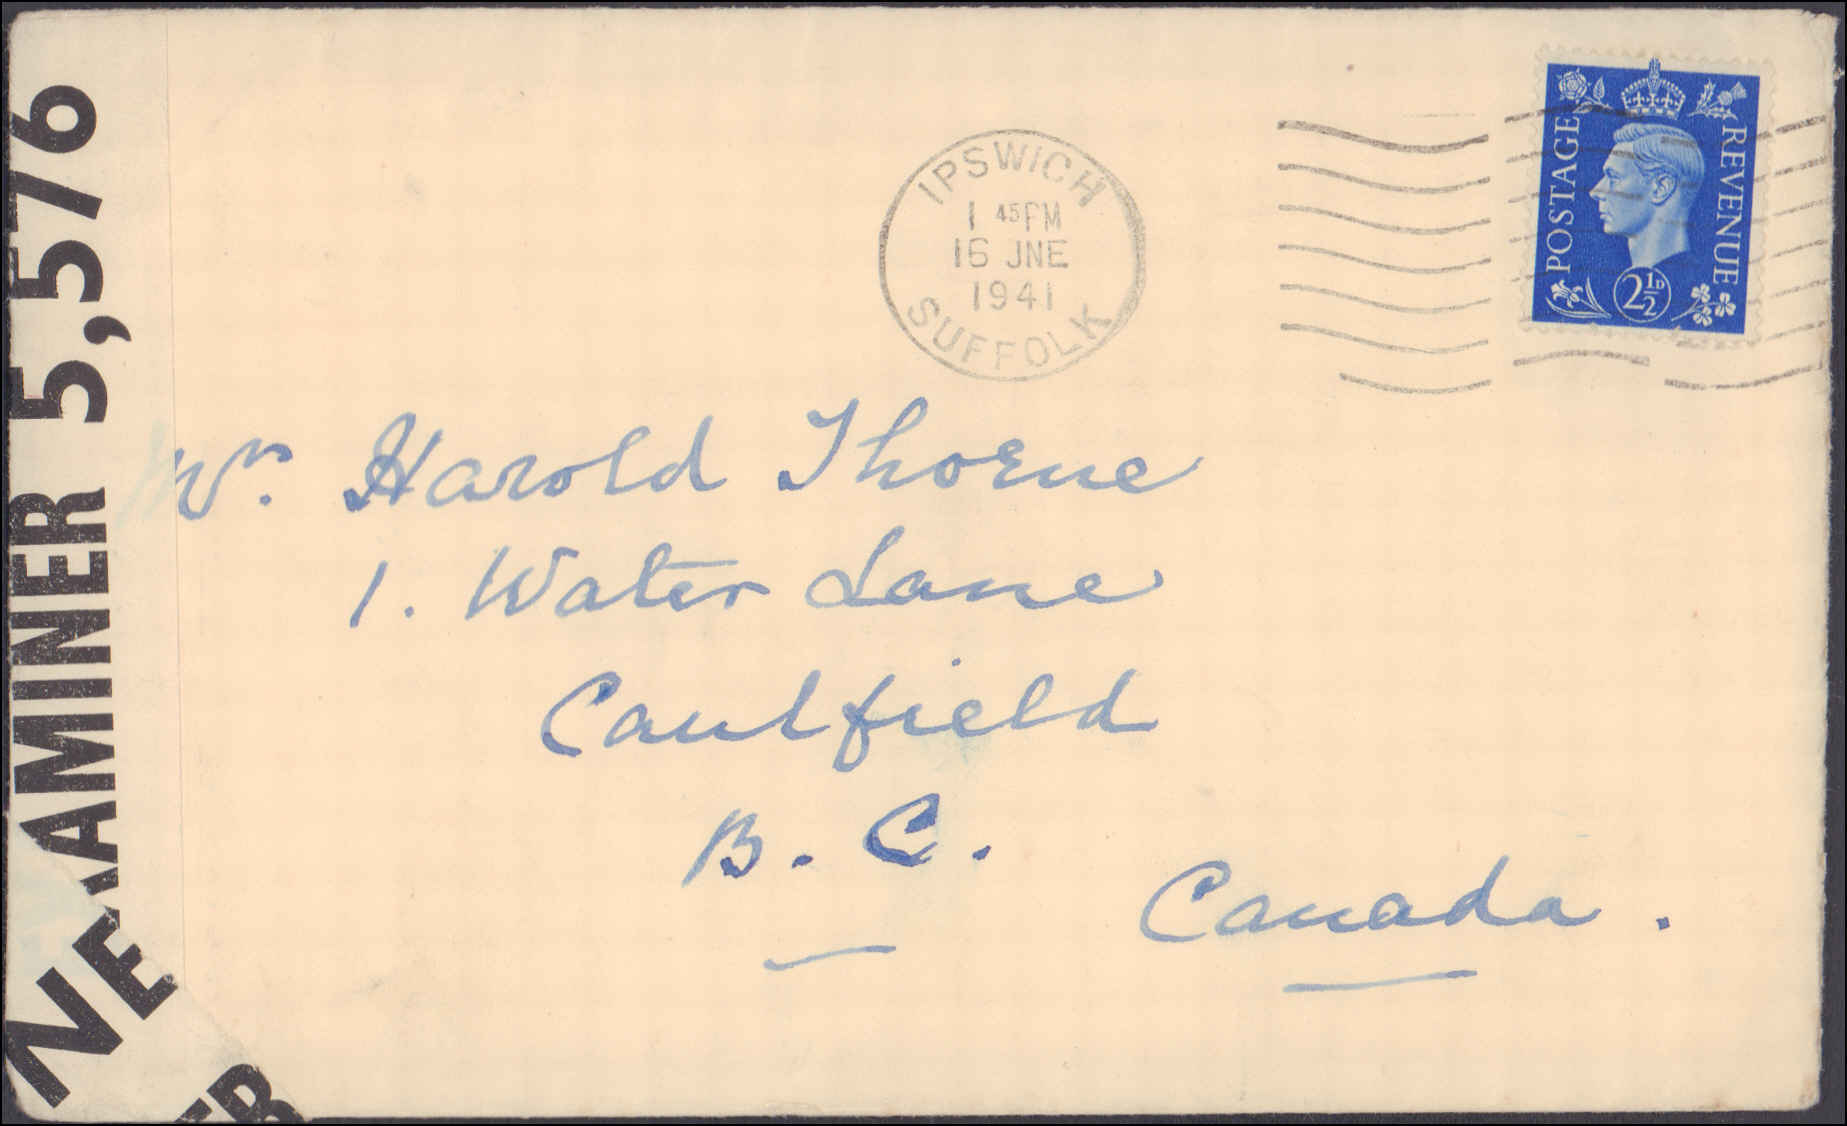 EXAMINER 5,576
NE
ER
IPSWICH
1 45 PM
16 JNE
1941
SUFFOLK
POSTAGE
REVENUE
2½D
Mr. Harold Thorne
1. Water Lane
Caulfield
B. C.
Canada.